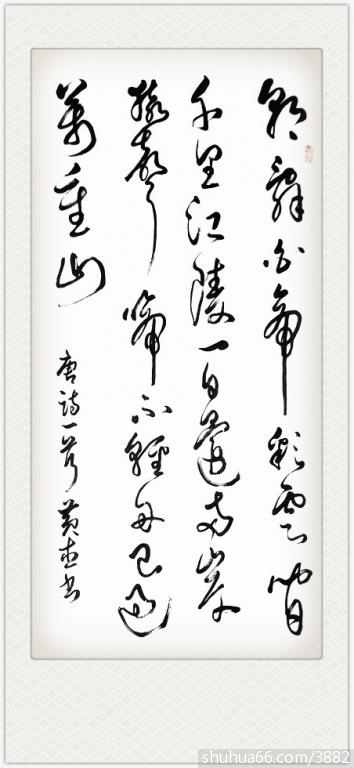 朝辭白帝彩雲間
千里江陵一日還兩岸
猿聲啼不輕舟已過
萬重山
唐詩一首 黃书
shuhua66.com/3882